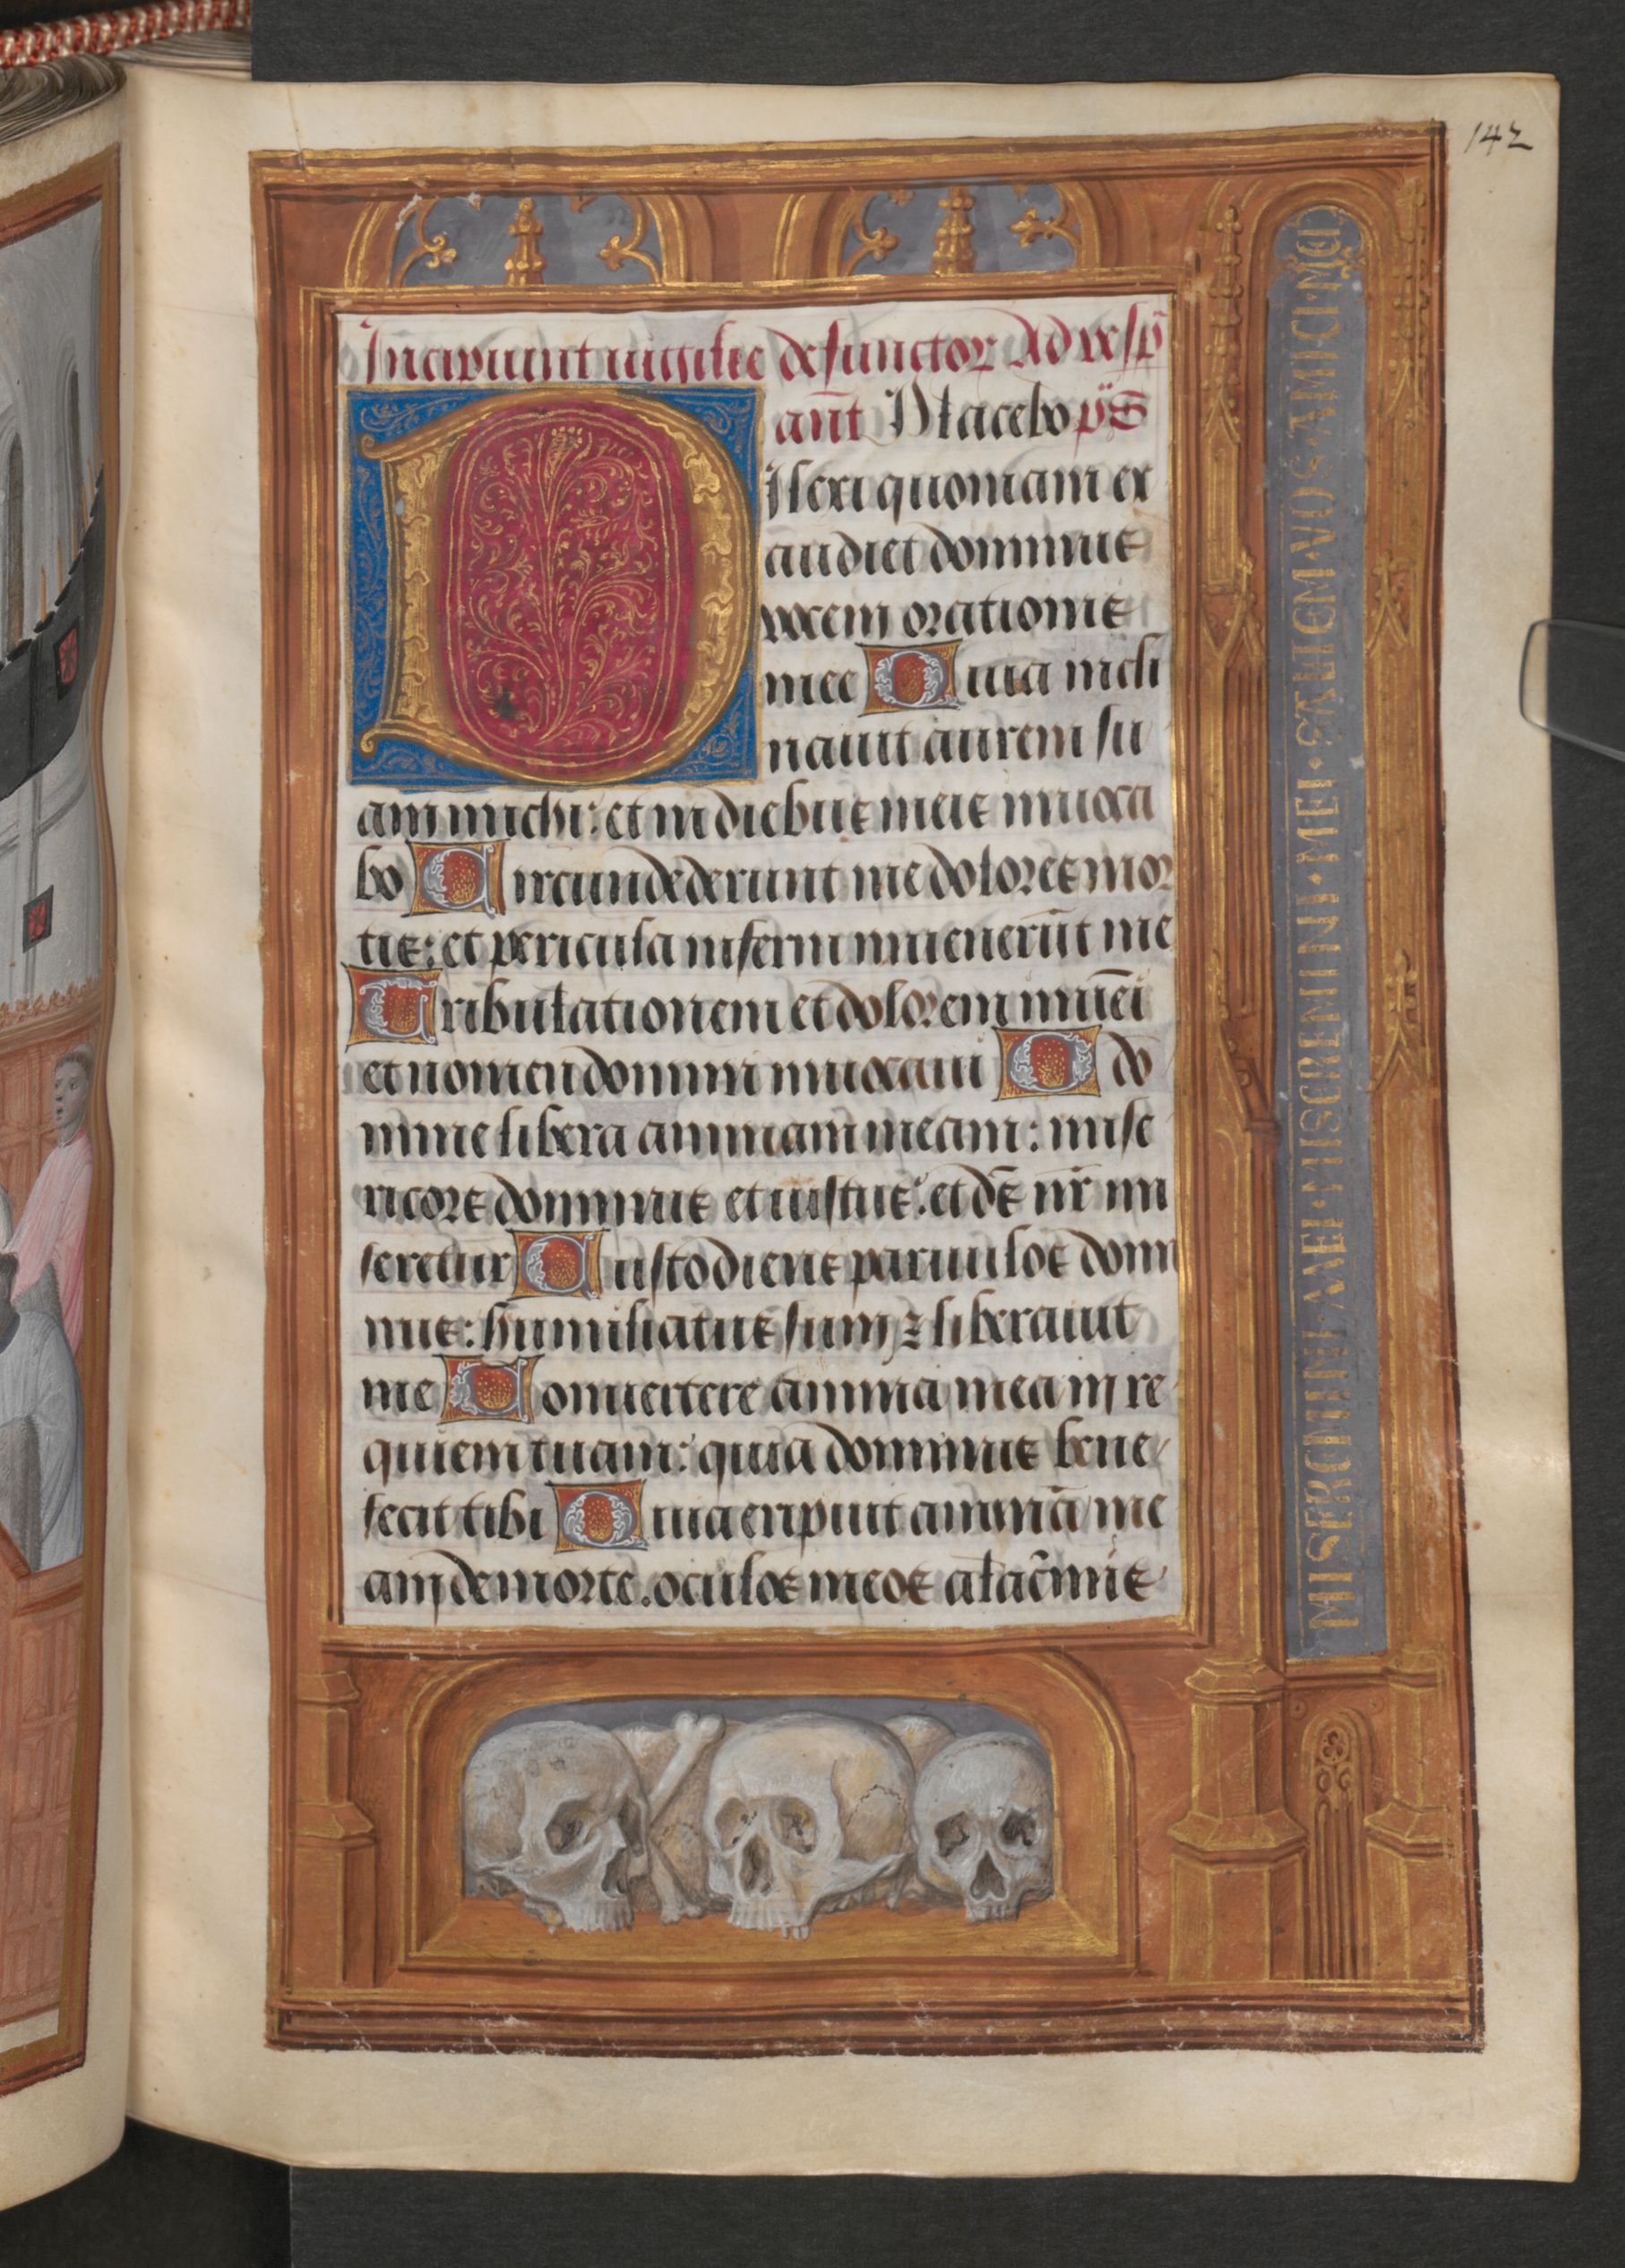 142
Incipiunt vigilie defunctor Ad vesp̄
an̄t Placebo p̄s
Dilexi quoniam ex
audiet dominus
vocem orationis
mee Quia incli
nauit aurem su
am michi: et in diebus meis inuoca
bo Circundederunt me dolores mor
tis: et pericula inferni inuenerūt me
Tribulationem et dolorem inuēi
et nomen domini inuocaui O do
mine libera animam meam: mise
ricors dominus et iustus: et dēs nr̄ mi
seretur Custodiens paruulos domi
nus: humiliatus sum ⁊ liberauit
me Conuertere anima mea in re
quiem tuam: quia dominus bene
fecit tibi Quia eripuit animā me
am de morte. oculos meos a lac̄mis
MISEREMINI·MEI·MISEREMINI·MEI·SALTEM·VOS·AMICI·MEI